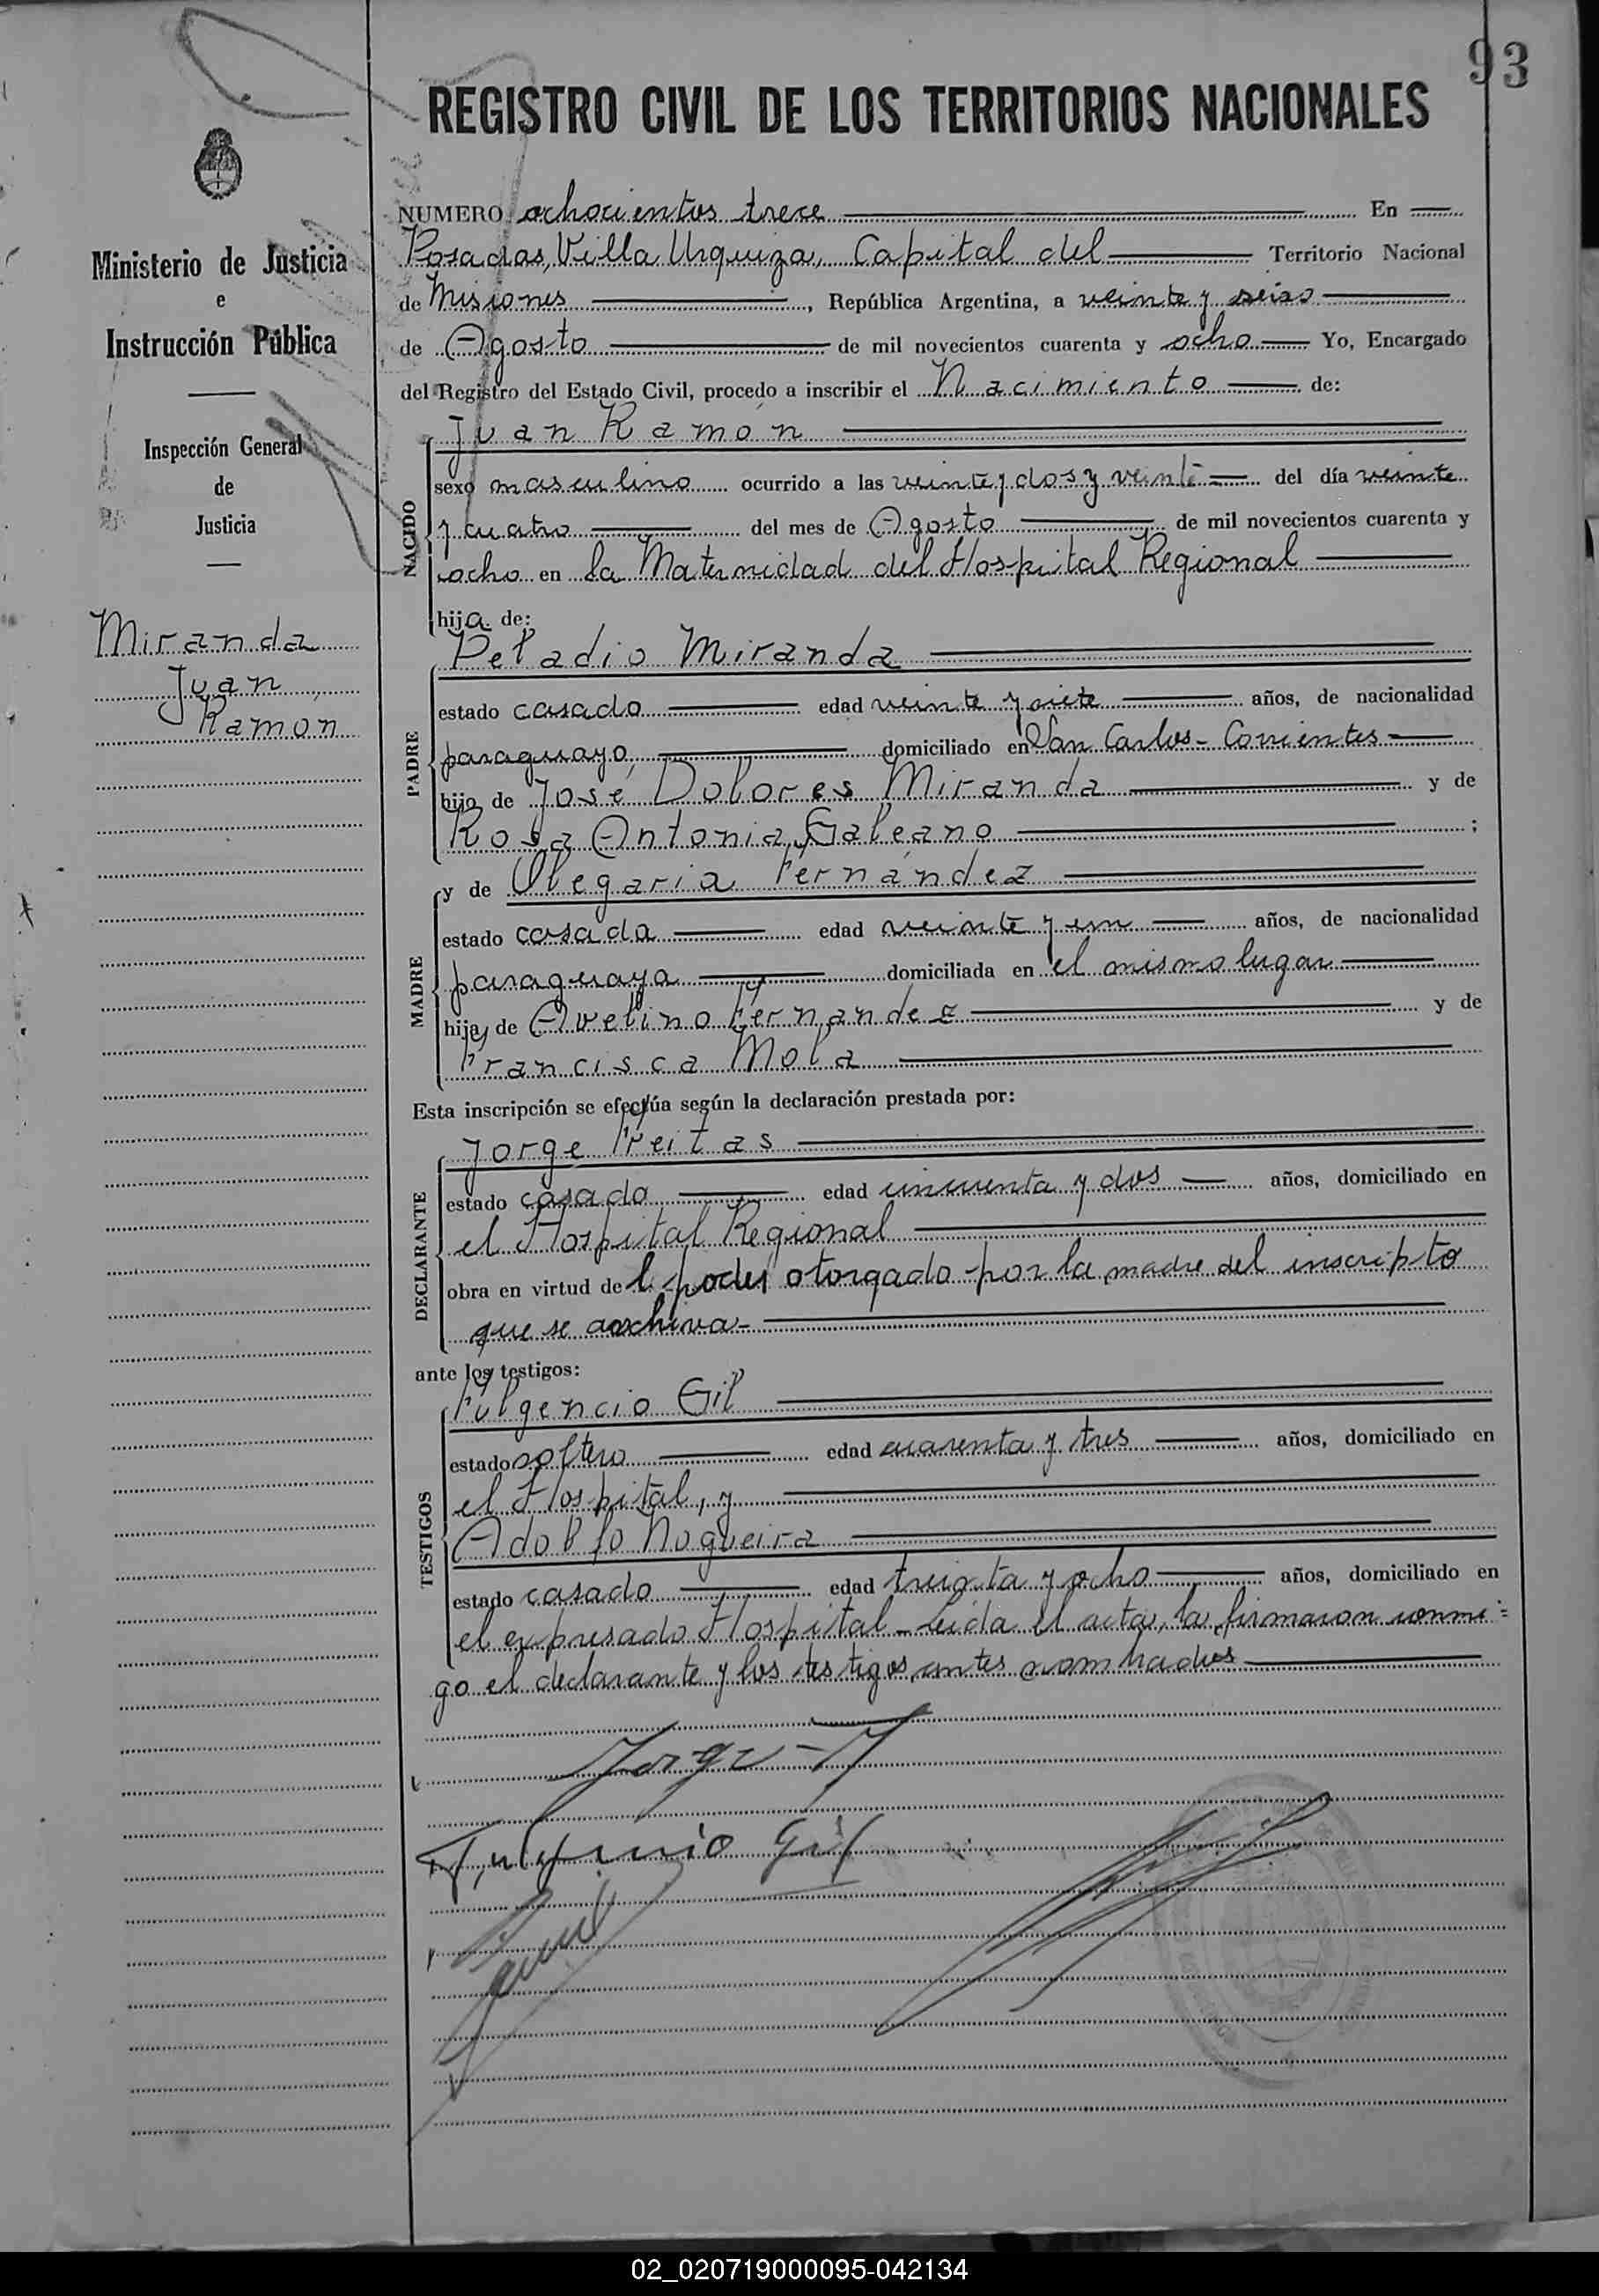 93
REGISTRO CIVIL DE LOS TERRITORIOS NACIONALES
Ministerio de Justicia
e
Instrucción Pública
Inspección General
de
Justicia
Miranda
Juan
Ramón
NUMERO ochocientos trece En
Posadas, Villa Urquiza, Capital del Territorio Nacional
de Misiones, República Argentina, a veinte y seis
de Agosto de mil novecientos cuarenta y ocho Yo, Encargado
del Registro del Estado Civil, procedo a inscribir el Nacimiento de:
NACIDO
Juan Ramón
sexo masculino ocurrido a las veinte y dos y veinte del día veinte
y cuatro del mes de Agosto de mil novecientos cuarenta y
ocho en la Maternidad del Hospital Regional
hijo de:
PADRE
Peladio Miranda
estado casado edad veinte y siete años, de nacionalidad
paraguayo, domiciliado en San Carlos - Corrientes
hijo de José Dolores Miranda y de
Rosa Antonia Galeano ;
MADRE
y de Olegaria Fernández
estado casada edad veinte y un años, de nacionalidad
paraguaya domiciliada en el mismo lugar
hija de Avelino Fernandez y de
Francisca Mola
Esta inscripción se efectúa según la declaración prestada por:
DECLARANTE
Jorge Freitas
estado casado edad cincuenta y dos años, domiciliado en
el Hospital Regional
obra en virtud del poder otorgado por la madre del inscripto
que se archiva-
ante los testigos:
TESTIGOS
Fulgencio Gil
estado soltero edad cuarenta y tres años, domiciliado en
el Hospital, y
Adolfo Nogueira
estado casado edad treinta y ocho años, domiciliado en
el expresado Hospital - Leida el acta, la firmaron conmi=
go el declarante y los testigos antes nombrados
Jorge F
Fulgencio Gil
02_020719000095-042134